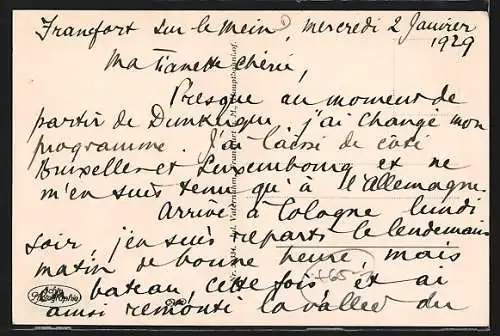 Francfort sur le Mein, mercredi 2 Janvier
1929
Ma Nanette chérie,
Presque au moment de
partir de Dunkerque, j'ai changé mon
programme. J'ai laissé de côté
Bruxelles et Luxembourg et ne
m'en suis tenu qu'à l'Allemagne.
Arrivé à Cologne lundi
soir, j'en suis reparti le lendemain
matin de bonne heure, mais
bateau, cette fois, et ai
ainsi remonté la vallée du